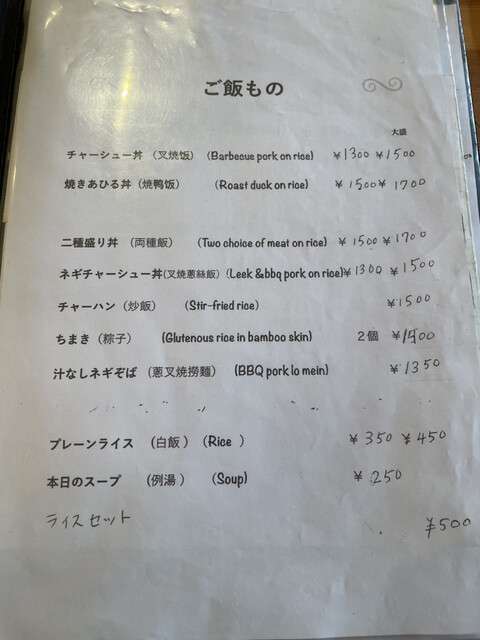 ご飯もの
大盛
チャーシュー丼 （叉焼饭） (Barbecue pork on rice) ¥1300 ¥1500
焼きあひる丼（焼鸭饭） (Roast duck on rice) ¥1500 ¥1700
二種盛り丼 （両種飯） (Two choice of meat on rice) ¥1500 ¥1700
ネギチャーシュー丼(叉焼蔥絲飯) (Leek &bbq pork on rice) ¥1300 ¥1500
チャーハン（炒飯） (Stir-fried rice) ¥1500
ちまき（粽子） (Glutenous rice in bamboo skin) 2個 ¥1500
汁なしネギそば （蔥叉焼撈麺） (BBQ pork lo mein) ¥1350
プレーンライス （白飯 ） (Rice ) ¥350 ¥450
本日のスープ （例湯 ） (Soup) ¥250
ライスセット ¥500